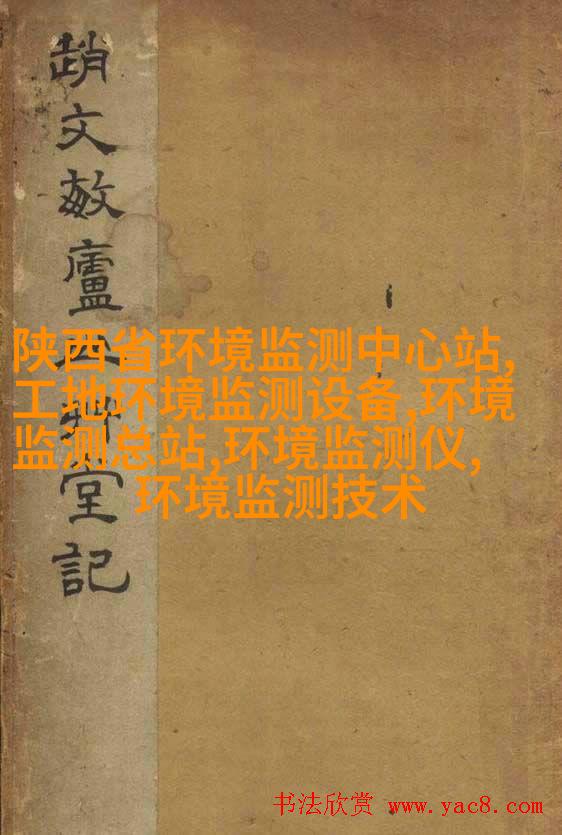 趙文敏廬堂記
陕西省环境监测中心站,
工地环境监测设备,环境
监测总站,环境监测仪,
环境监测技术
书法欣赏 www.yac8.com